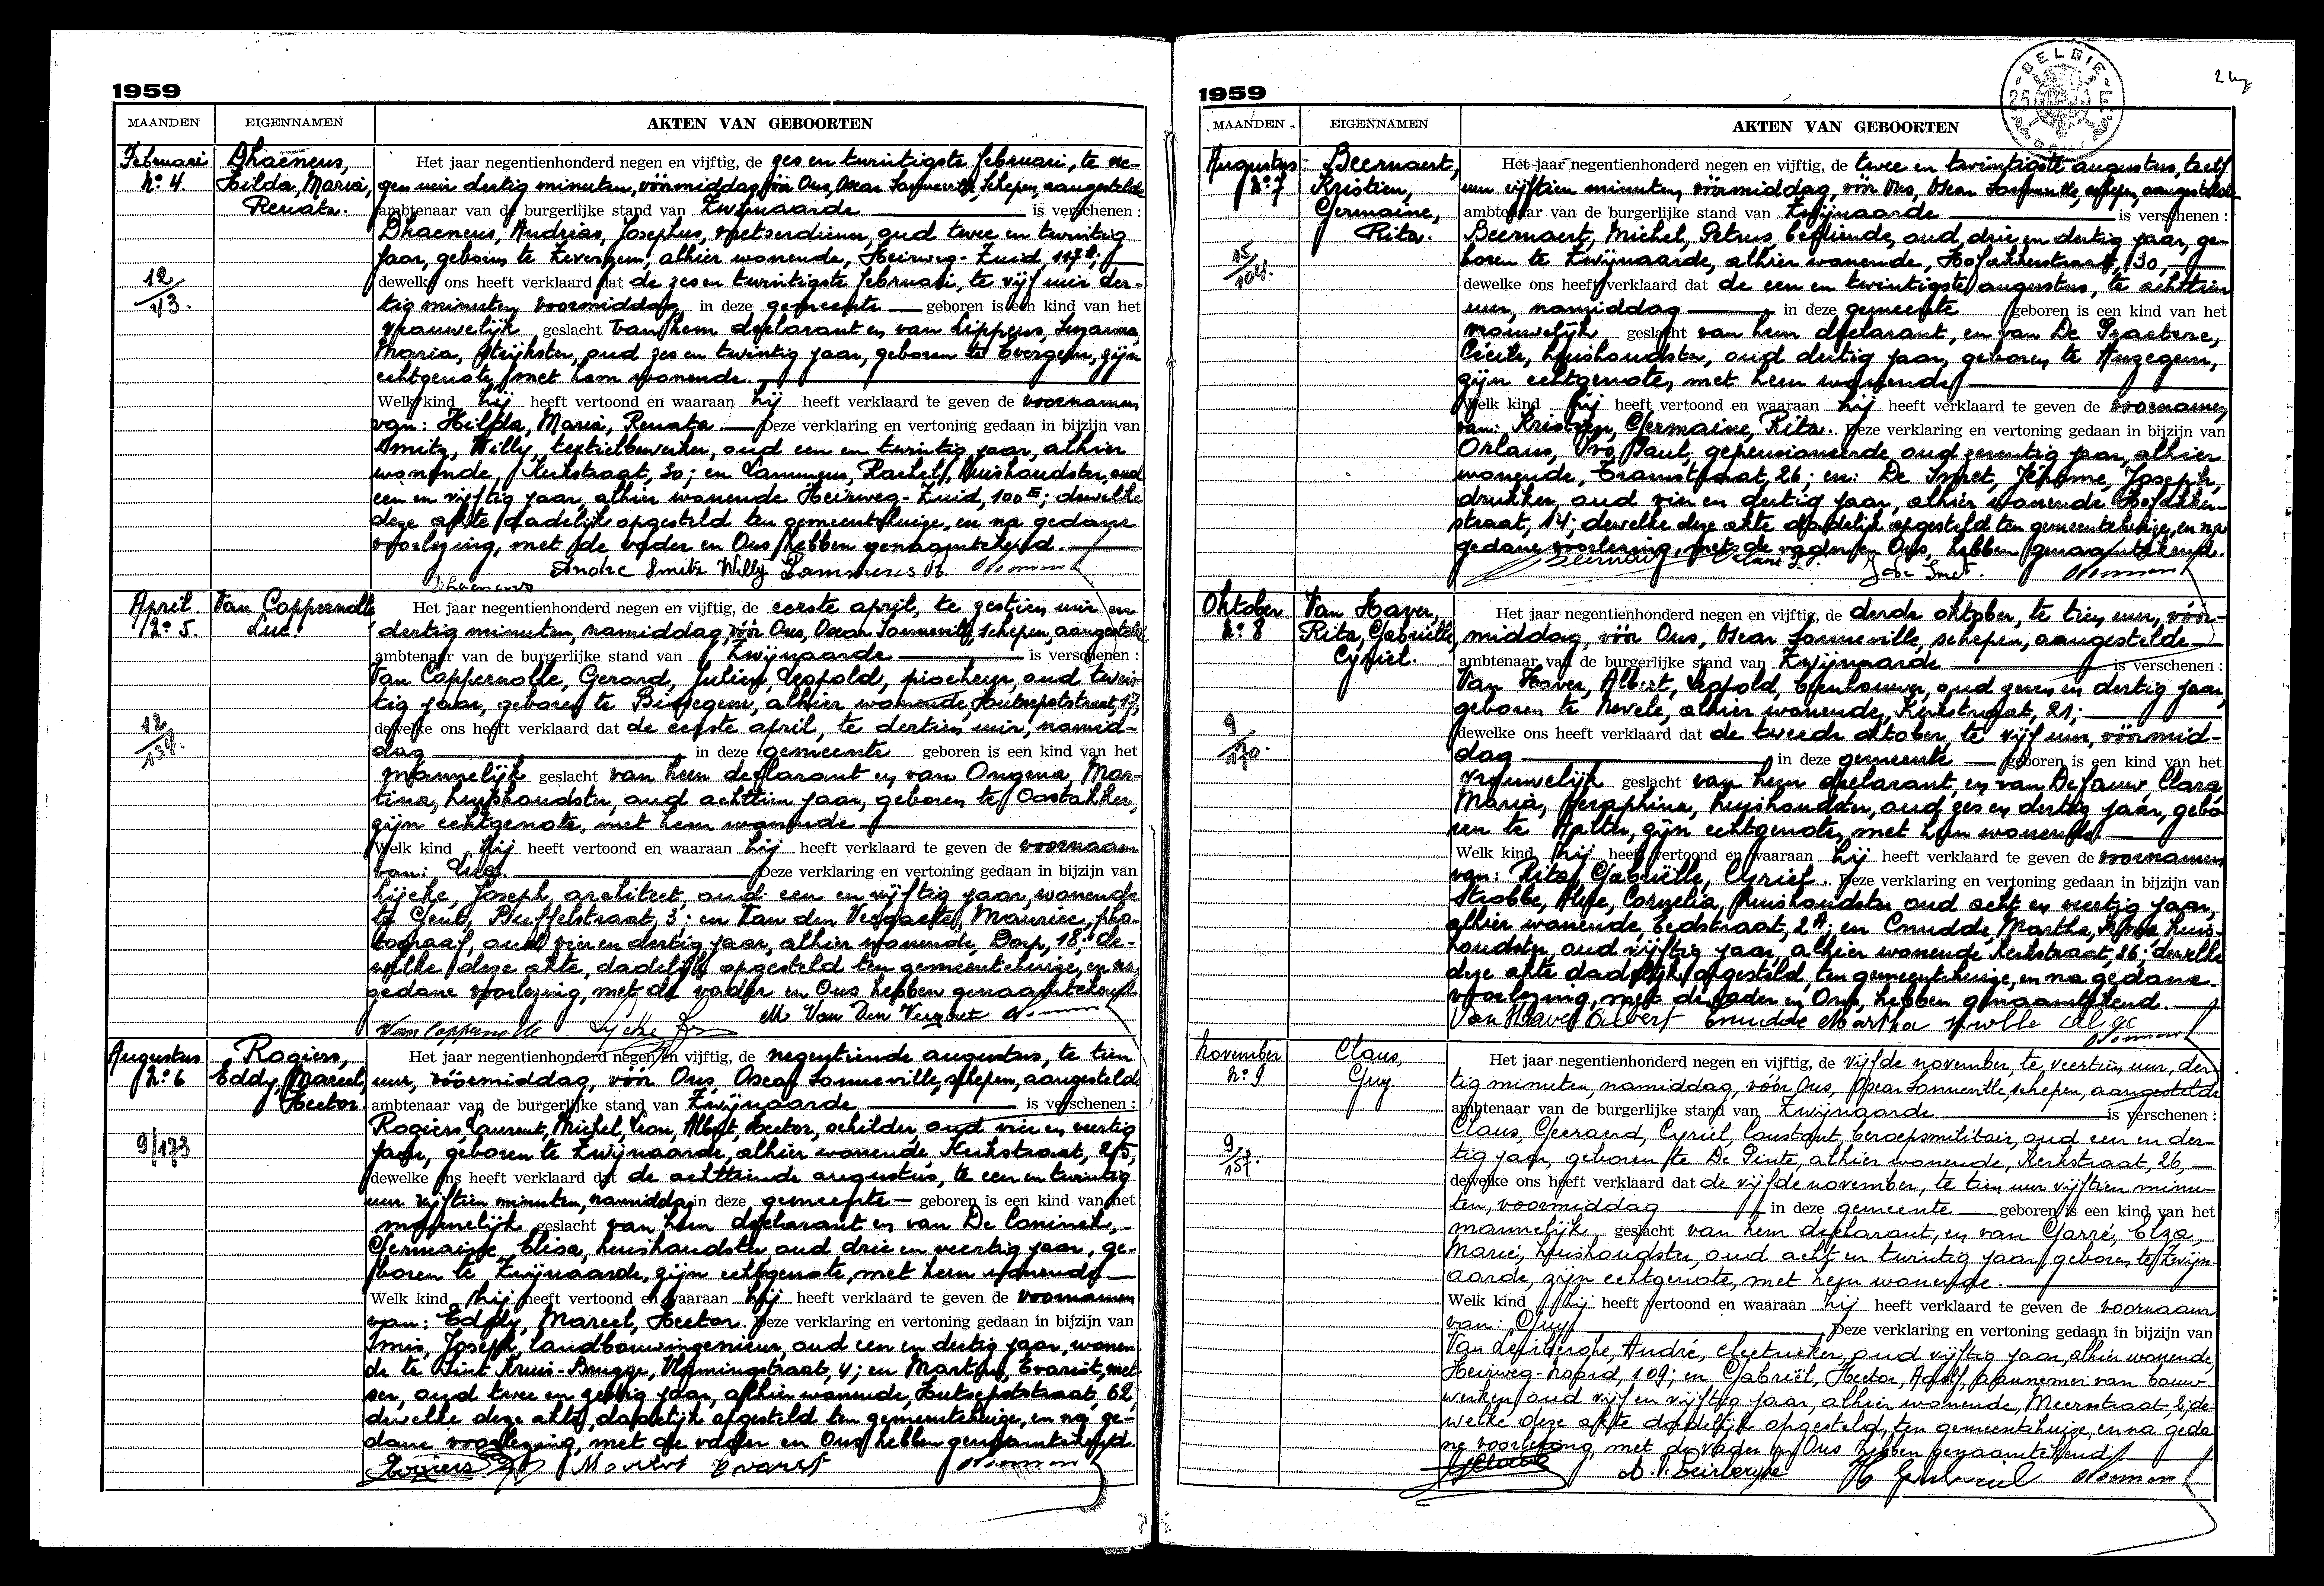 1959
MAANDEN EIGENNAMEN AKTEN VAN GEBOORTEN
Februari
N° 4.
Dhaenens,
Hilda, Maria,
Renata.
12/43.
Het jaar negentienhonderd negen en vijftig, de zes en twintigste februari, te ne-
gen uur dertig minuten, vóórmiddag, vóór Ons, Oscar Sanneville, Schepen, aangestelde
ambtenaar van de burgerlijke stand van Zwijnaarde is verschenen :
Dhaenens, Andrias, Josephus, metserdiener, oud twee en twintig
jaar, geboren te Zevergem, alhier wonende, Heirweg-Zuid,
dewelke ons heeft verklaard dat de zes en twintigste februari, te vijf uur der-
tig minuten voormiddag, in deze gemeente geboren is een kind van het
vrouwelijk geslacht van hem declarant en van Lippens, Suzanna,
Maria, strijkster, oud zes en twintig jaar, geboren te Evergem, zijn
echtgenote, met hem wonende.
Welk kind hij heeft vertoond en waaraan hij heeft verklaard te geven de voornamen
van: Hilda, Maria, Renata Deze verklaring en vertoning gedaan in bijzijn van
Smitz, Willy, textielbewerker, oud een en twintig jaar, alhier
wonende, Kerkstraat, 30; en Lammens, Rachel, huishoudster, oud
een en vijftig jaar, alhier wonende Heirweg-Zuid, 100E; dewelke
deze akte dadelijk opgesteld ten gemeentehuize, en na gedane
voorlezing, met de vader en Ons hebben genaamtekend.
Andre Smitz Willy Lammens R.
Dhaenens
April.
N° 5.
Van Coppernolle,
Luc.
12/134.
Het jaar negentienhonderd negen en vijftig, de eerste april, te zestien uur en
dertig minuten, namiddag, vóór Ons, Oscar Sanneville, schepen, aangestelde
ambtenaar van de burgerlijke stand van Zwijnaarde is verschenen :
Van Coppernolle, Gerard, Julien, Leopold, piocheur, oud twin-
tig jaar, geboren te Bissegem, alhier wonende, Hutsepotstraat, 17,
dewelke ons heeft verklaard dat de eerste april, te dertien uur, namid-
dag in deze gemeente geboren is een kind van het
mannelijk geslacht van hem declarant en van Ongena, Mar-
tina, huishoudster, oud achttien jaar, geboren te Oostakker,
zijn echtgenote, met hem wonende
Welk kind hij heeft vertoond en waaraan hij heeft verklaard te geven de voornaam
van: Luc. Deze verklaring en vertoning gedaan in bijzijn van
Lijcke, Joseph, architect, oud een en vijftig jaar, wonende
te Gent, Buffelstraat, 3; en Van den Vergaete, Maurice, fo-
tograaf, oud vier en dertig jaar, alhier wonende, Dorp, 18; de-
welke deze akte, dadelijk opgesteld ten gemeentehuize, en na
gedane voorlezing, met de vader en Ons hebben genaamtekend
M. Van Den Vergaet
Van Coppernolle Lycke
Augustus
N° 6
Rogiers,
Eddy, Marcel,
Hector.
9/173
Het jaar negentienhonderd negen en vijftig, de negentiende augustus, te tien
uur, vóórmiddag, vóór Ons, Oscar Sanneville, schepen, aangestelde
ambtenaar van de burgerlijke stand van Zwijnaarde is verschenen :
Rogiers, Laurent, Michel, Leon, Albert, Hector, schilder, oud vier en veertig
jaar, geboren te Zwijnaarde, alhier wonende Kerkstraat,
dewelke ons heeft verklaard dat de achttiende augustus, te een en twintig
uur vijftien minuten, namiddag in deze gemeente geboren is een kind van het
mannelijk geslacht van hem declarant en van De Coninck,
Germaine, Elisa, huishoudster oud drie en veertig jaar, ge-
boren te Zwijnaarde, zijn echtgenote, met hem wonende
Welk kind hij heeft vertoond en waaraan hij heeft verklaard te geven de voornamen
van: Eddy, Marcel, Hector. Deze verklaring en vertoning gedaan in bijzijn van
Joseph, landbouwingenieur, oud een en dertig jaar, wonen-
de te Sint Kruis-Brugge, Vlamingstraat, 4; en Martens, Evarist, met-
ser, oud twee en zestig jaar, alhier wonende, Hutsepotstraat, 62,
dewelke deze akte, dadelijk opgesteld ten gemeentehuize, en na ge-
dane voorlezing, met de vader en Ons hebben genaamtekend.
Rogiers Evarist
1959
BELGIE
MAANDEN EIGENNAMEN AKTEN VAN GEBOORTEN
Augustus
N° 7
Beernaert,
Kristien,
Germaine,
Rita.
15/104.
Het jaar negentienhonderd negen en vijftig, de twee en twintigste augustus, te elf
uur vijftien minuten, vóórmiddag, vóór Ons, Oscar Sanneville, schepen, aangestelde
ambtenaar van de burgerlijke stand van Zwijnaarde is verschenen :
Beernaert, Michel, Petrus, bediende, oud drie en dertig jaar, ge-
boren te Zwijnaarde, alhier wonende, Hofakkerstraat, 30,
dewelke ons heeft verklaard dat de een en twintigste augustus, te achttien
uur, namiddag in deze gemeente geboren is een kind van het
vrouwelijk geslacht van hem declarant, en van De Praetere,
Cécile, huishoudster, oud dertig jaar, geboren te Anzegem,
zijn echtgenote, met hem wonende
Welk kind hij heeft vertoond en waaraan hij heeft verklaard te geven de voornamen
van: Kristien, Germaine, Rita. Deze verklaring en vertoning gedaan in bijzijn van
Orlans, Ivo, Paul, gepensioneerde, oud zeventig jaar, alhier
wonende, Tramstraat, 26; en: De Smet, Jérome, Joseph,
drukker, oud vier en dertig jaar, alhier wonende Hofakker-
straat, 14; dewelke deze akte dadelijk opgesteld ten gemeentehuize, en na
gedane voorlezing, met de vader en Ons, hebben genaamtekend.
Beernaert Orlans J. De Smet.
Oktober
N° 8
Van Haver,
Rita, Gabriëlle,
Cyriel.
9/170.
Het jaar negentienhonderd negen en vijftig, de derde oktober, te tien uur, vóór-
middag, vóór Ons, Oscar Sanneville, schepen, aangestelde
ambtenaar van de burgerlijke stand van Zwijnaarde is verschenen :
Van Haver, Albert, Leopold, beenhouwer, oud zeven en dertig jaar,
geboren te Nevele, alhier wonende, Kerkstraat, 21;
dewelke ons heeft verklaard dat de tweede oktober, te vijf uur, vóórmid-
dag in deze gemeente geboren is een kind van het
vrouwelijk geslacht van hem declarant, en van De Fauw, Clara,
Maria, Seraphina, huishoudster, oud zes en dertig jaar, gebo-
ren te Aalter, zijn echtgenote, met hem wonende
Welk kind hij heeft vertoond en waaraan hij heeft verklaard te geven de voornamen
van: Rita, Gabriëlle, Cyriel. Deze verklaring en vertoning gedaan in bijzijn van
Strobbe, Alice, Cornelia, huishoudster oud acht en veertig jaar,
alhier wonende, Eedstraat, 2A; en Cnudde, Martha, huis-
houdster, oud vijftig jaar, alhier wonende Kerkstraat, 26; dewelke
deze akte dadelijk opgesteld, ten gemeentehuize, en na gedane
voorlezing, met de vader en Ons, hebben genaamtekend.
Van Haver Albert Cnudde Martha Alice
November
N° 9
Claus,
Guy
9/157.
Het jaar negentienhonderd negen en vijftig, de vijfde november, te veertien uur, der-
tig minuten, namiddag, vóór Ons, Oscar Sanneville, schepen, aangestelde
ambtenaar van de burgerlijke stand van Zwijnaarde. is verschenen :
Claus, Geeraerd, Cyriel, Constant, beroepsmilitair, oud een en der-
tig jaar, geboren te De Pinte, alhier wonende, Kerkstraat, 26,
dewelke ons heeft verklaard dat de vijfde november, te tien uur vijftien minu-
ten, voormiddag in deze gemeente geboren is een kind van het
mannelijk geslacht van hem declarant, en van Garré, Elza,
Marie, huishoudster, oud acht en twintig jaar, geboren te Zwijn-
aarde, zijn echtgenote, met hem wonende.
Welk kind hij heeft vertoond en waaraan hij heeft verklaard te geven de voornaam
van: Guy Deze verklaring en vertoning gedaan in bijzijn van
André, electrieker, oud vijftig jaar, alhier wonende,
Heirweg-Noord, 109; en Gabriël, Hector, Adolf, aannemer van bouw-
werken, oud vijf en vijftig jaar, alhier wonende, Meersstraat, 2; de-
welke deze akte dadelijk opgesteld, ten gemeentehuize, en na geda-
ne voorlezing, met de vader en Ons hebben genaamtekend
GClaus H Gabriel